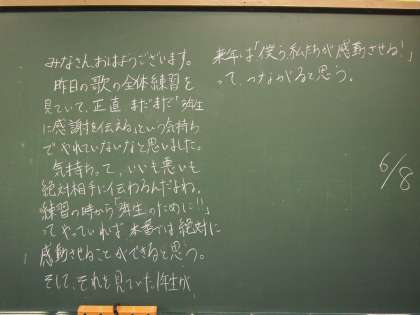 みなさん、おはようございます。
昨日の歌の全体練習を
見ていて、正直 まだまだ「3年生
に感謝を伝える」という気持ち
でやれていないなと思いました。
気持ちって、いいも悪いも
絶対相手に伝わるんだよね。
練習の時から「3年生のために!!」
ってやっていれば 本番では絶対に
感動させることができると思う。
そして、それを見ていた1年生が、
来年は「僕う私たちが感動させる!」
って、つながると思う。
6/8